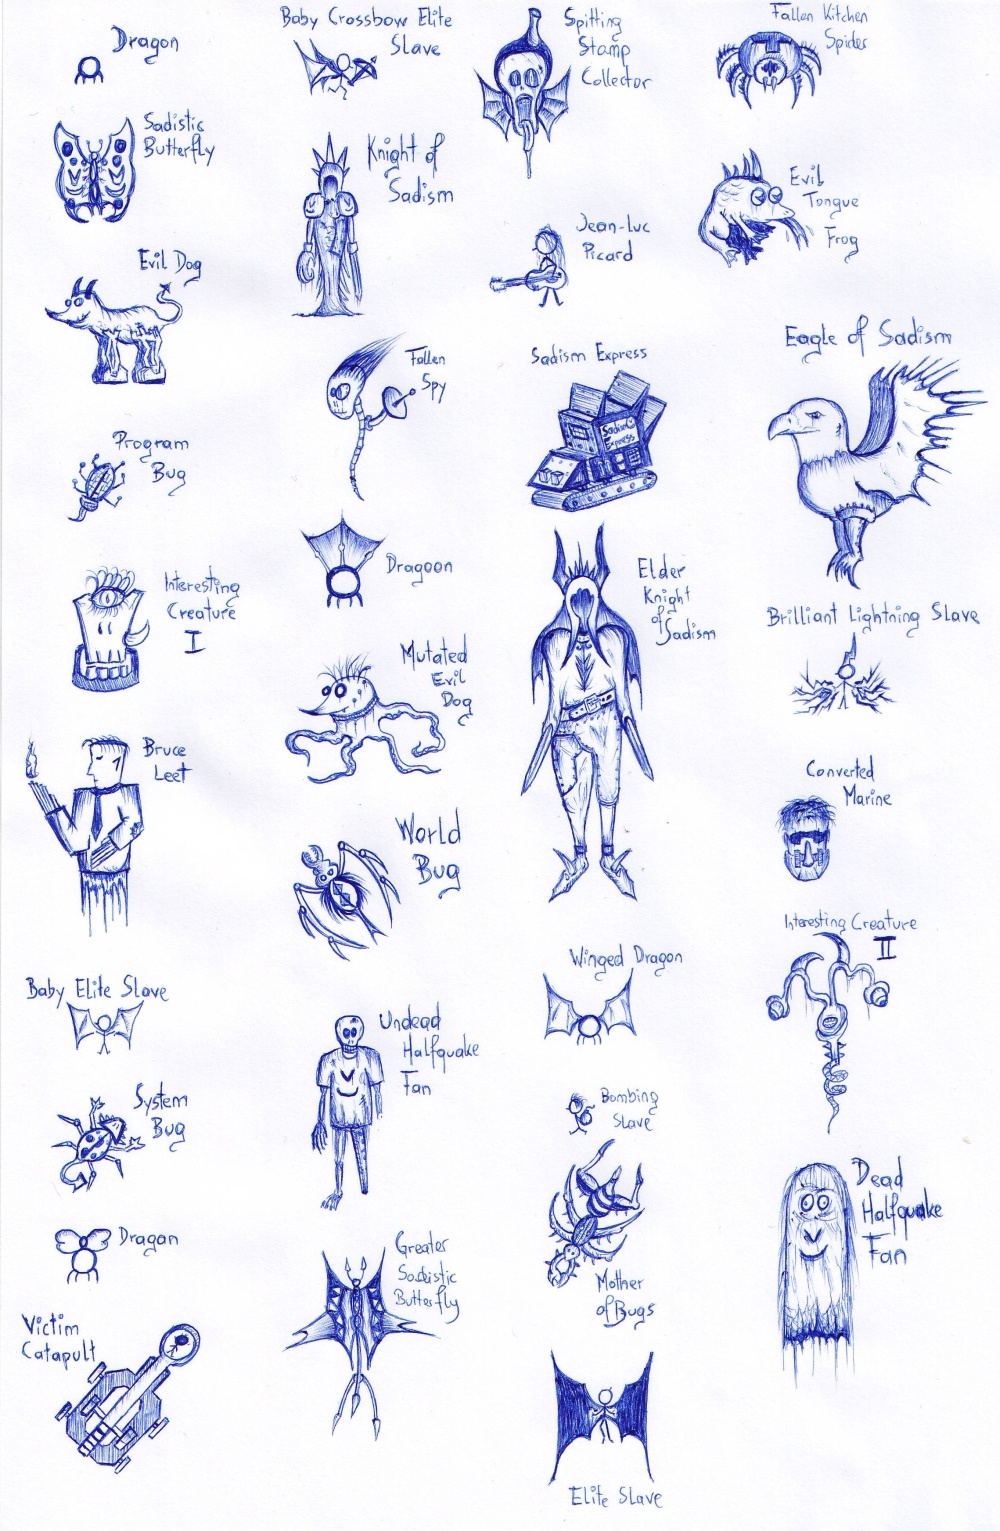 Dragon
Sadistic
Butterfly
Evil Dog
Program
Bug
Interesting
Creature
I
Bruce
Leet
Baby Elite Slave
System
Bug
Dragan
Victim
Catapult
Baby Crossbow Elite
Slave
Knight of
Sadism
Fallen
Spy
Dragoon
Mutated
Evil
Dog
World
Bug
Undead
Halfquake
Fan
Greater
Sadistic
Butterfly
Spitting
Stamp
Collector
Jean-Luc
Picard
Sadism Express
Sadism
Express
Elder
Knight
of
Sadism
Winged Dragon
Bombing
Slave
Mother
of Bugs
Elite Slave
Fallen Kitchen
Spider
Evil
Tongue
Frog
Eagle of Sadism
Brilliant Lightning Slave
Converted
Marine
Interesting Creature
II
Dead
Halfquake
Fan